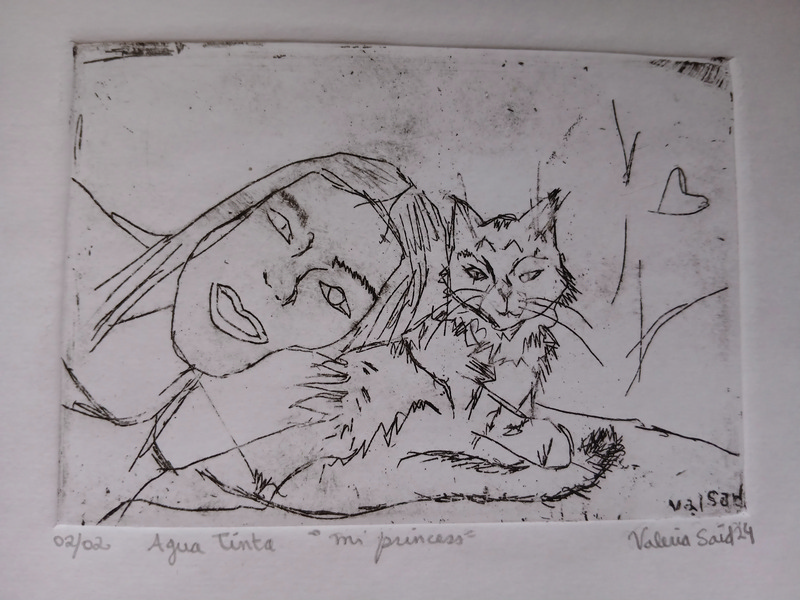 valsad
02/02 Agua Tinta "mi princess" Valeria Said 24